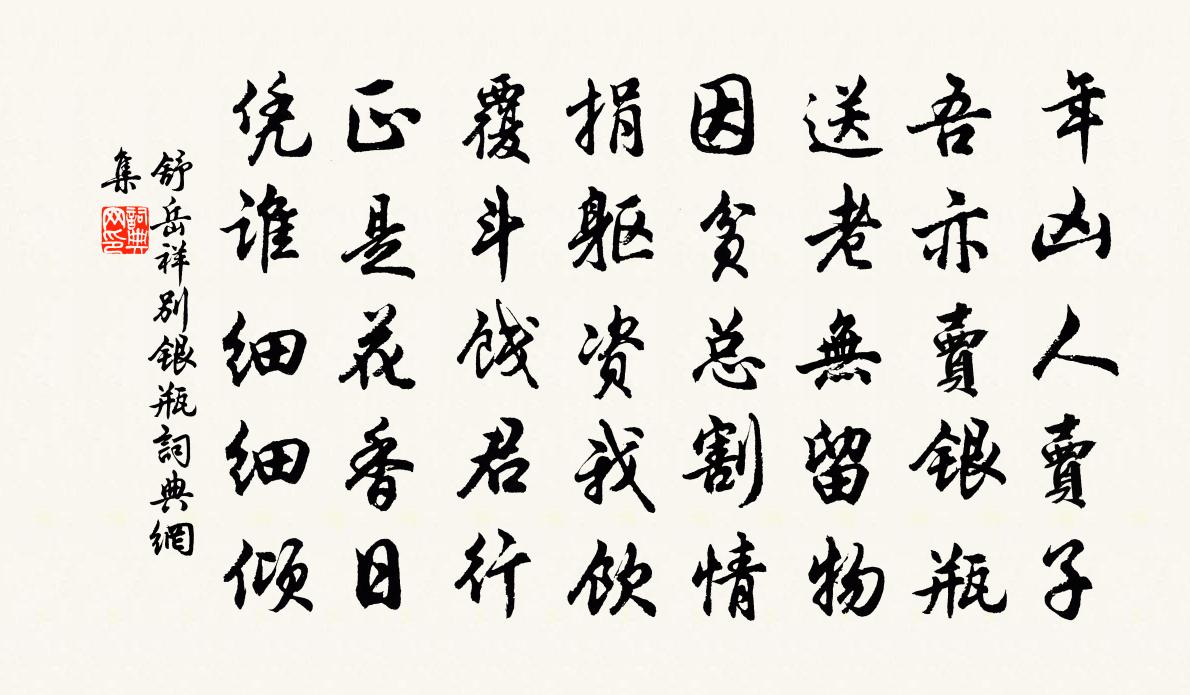 年凶人賣子
吾亦賣銀瓶
送老無留物
因貧总割情
捐躯资我飲
覆斗餞君行
正是花香日
凭谁细细倾
舒岳祥别銀瓶詞典網
集
詞典网印